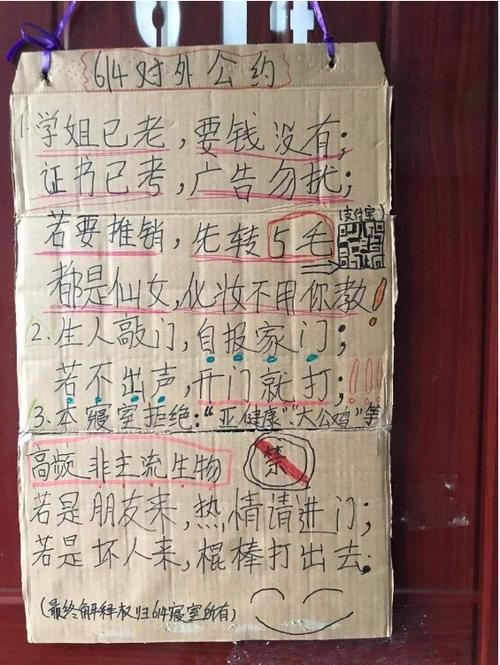 614对外公约
1.学姐已老,要钱没有;
证书已考,广告勿扰;
(支付宝)
若要推销,先转5毛
都是仙女,化妆不用你教!
2.生人敲门,自报家门;
若不出声,开门就打;!!!
3.本寝室拒绝:“亚健康”、“大公鸡”等
高频非主流生物
禁
若是朋友来,热情请进门;
若是坏人来,棍棒打出去;
(最终解释权归614寝室所有)